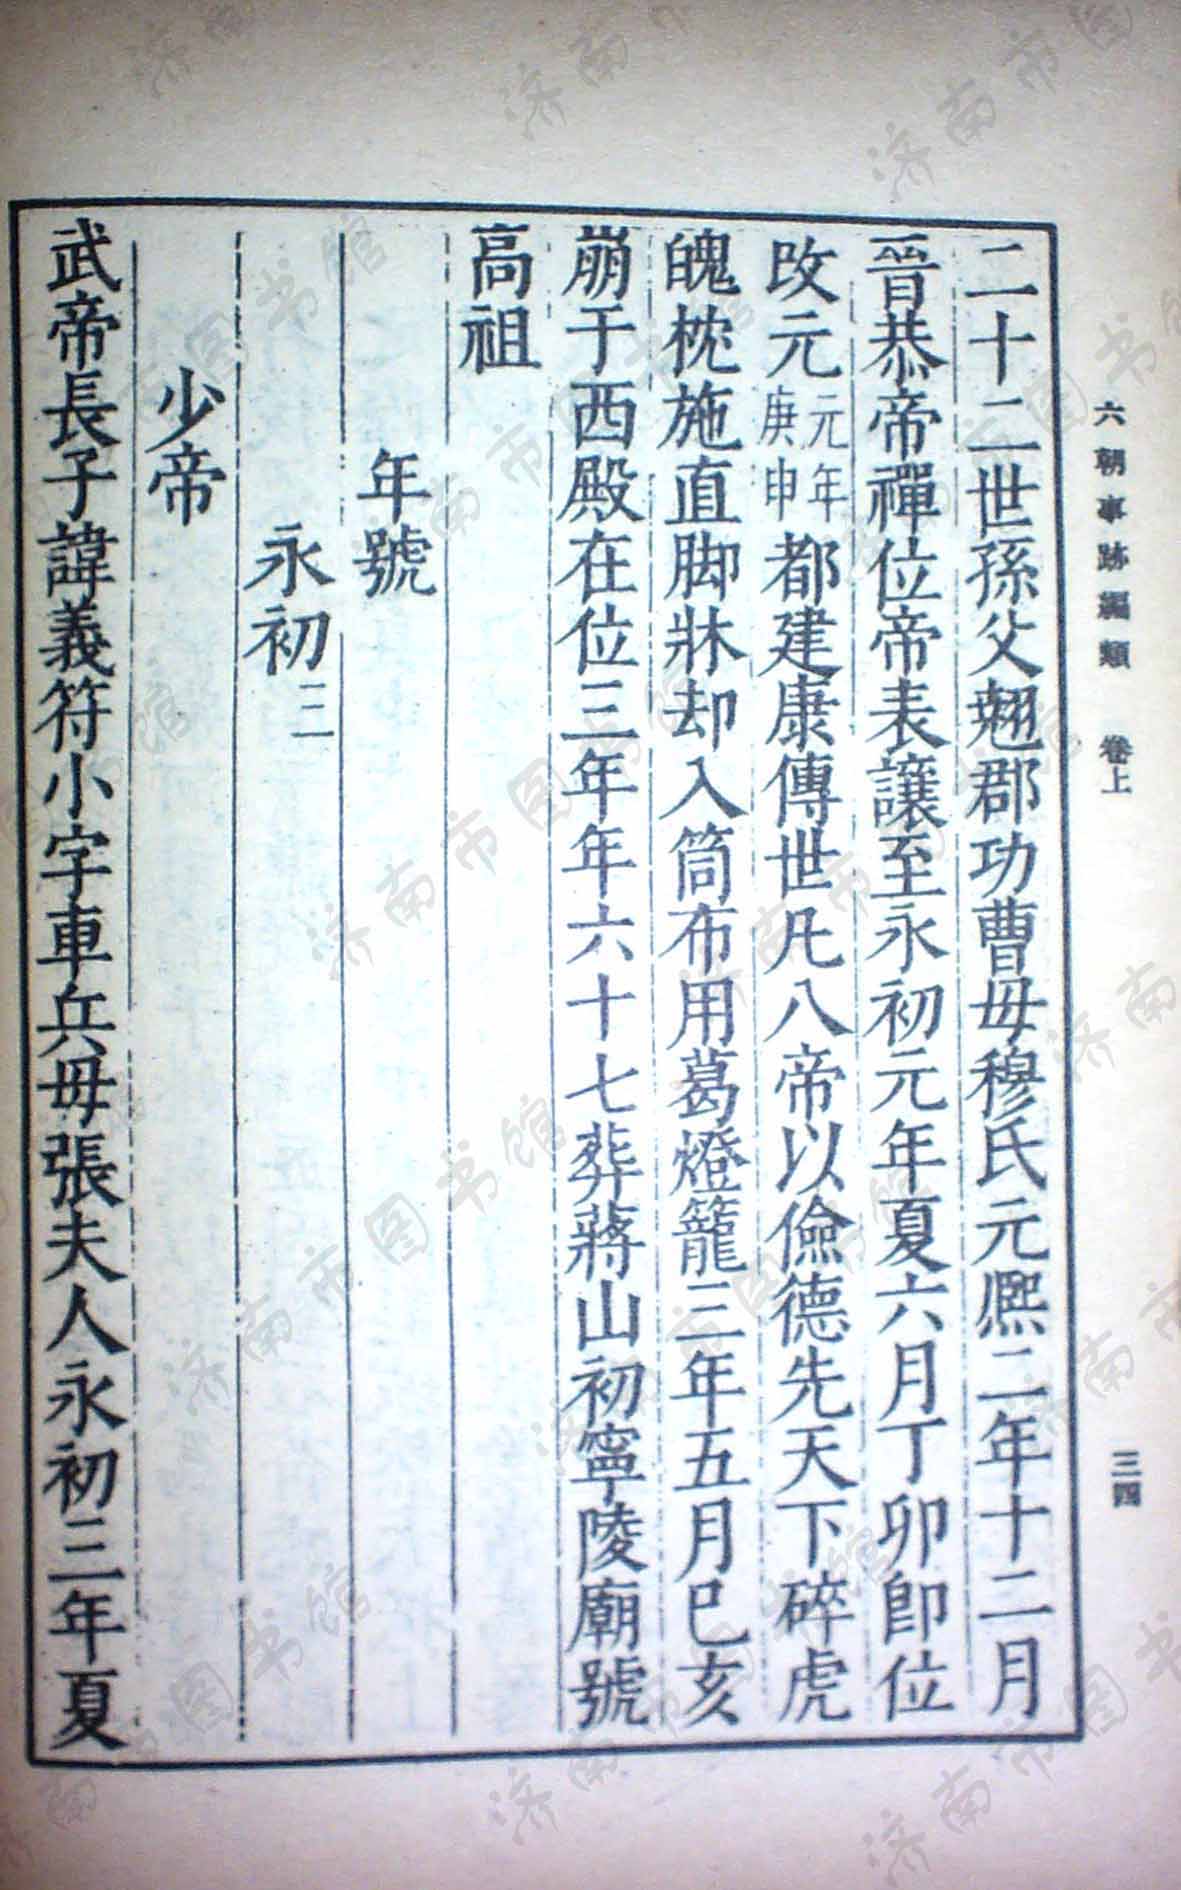 六朝事跡編類 卷上 三四
二十二世孫父翹郡功曹毋穆氏元熙二年十二月
晉恭帝禪位帝表讓至永初元年夏六月丁卯卽位
改元元年庚申都建康傳世凡八帝以儉德先天下碎虎
魄枕施直脚牀却入筒布用葛燈籠三年五月巳亥
崩于西殿在位三年年六十七葬蔣山初寧陵廟號
高祖
年號
永初三
少帝
武帝長子諱義符小字車兵毋張夫人永初三年夏
济南市图书馆